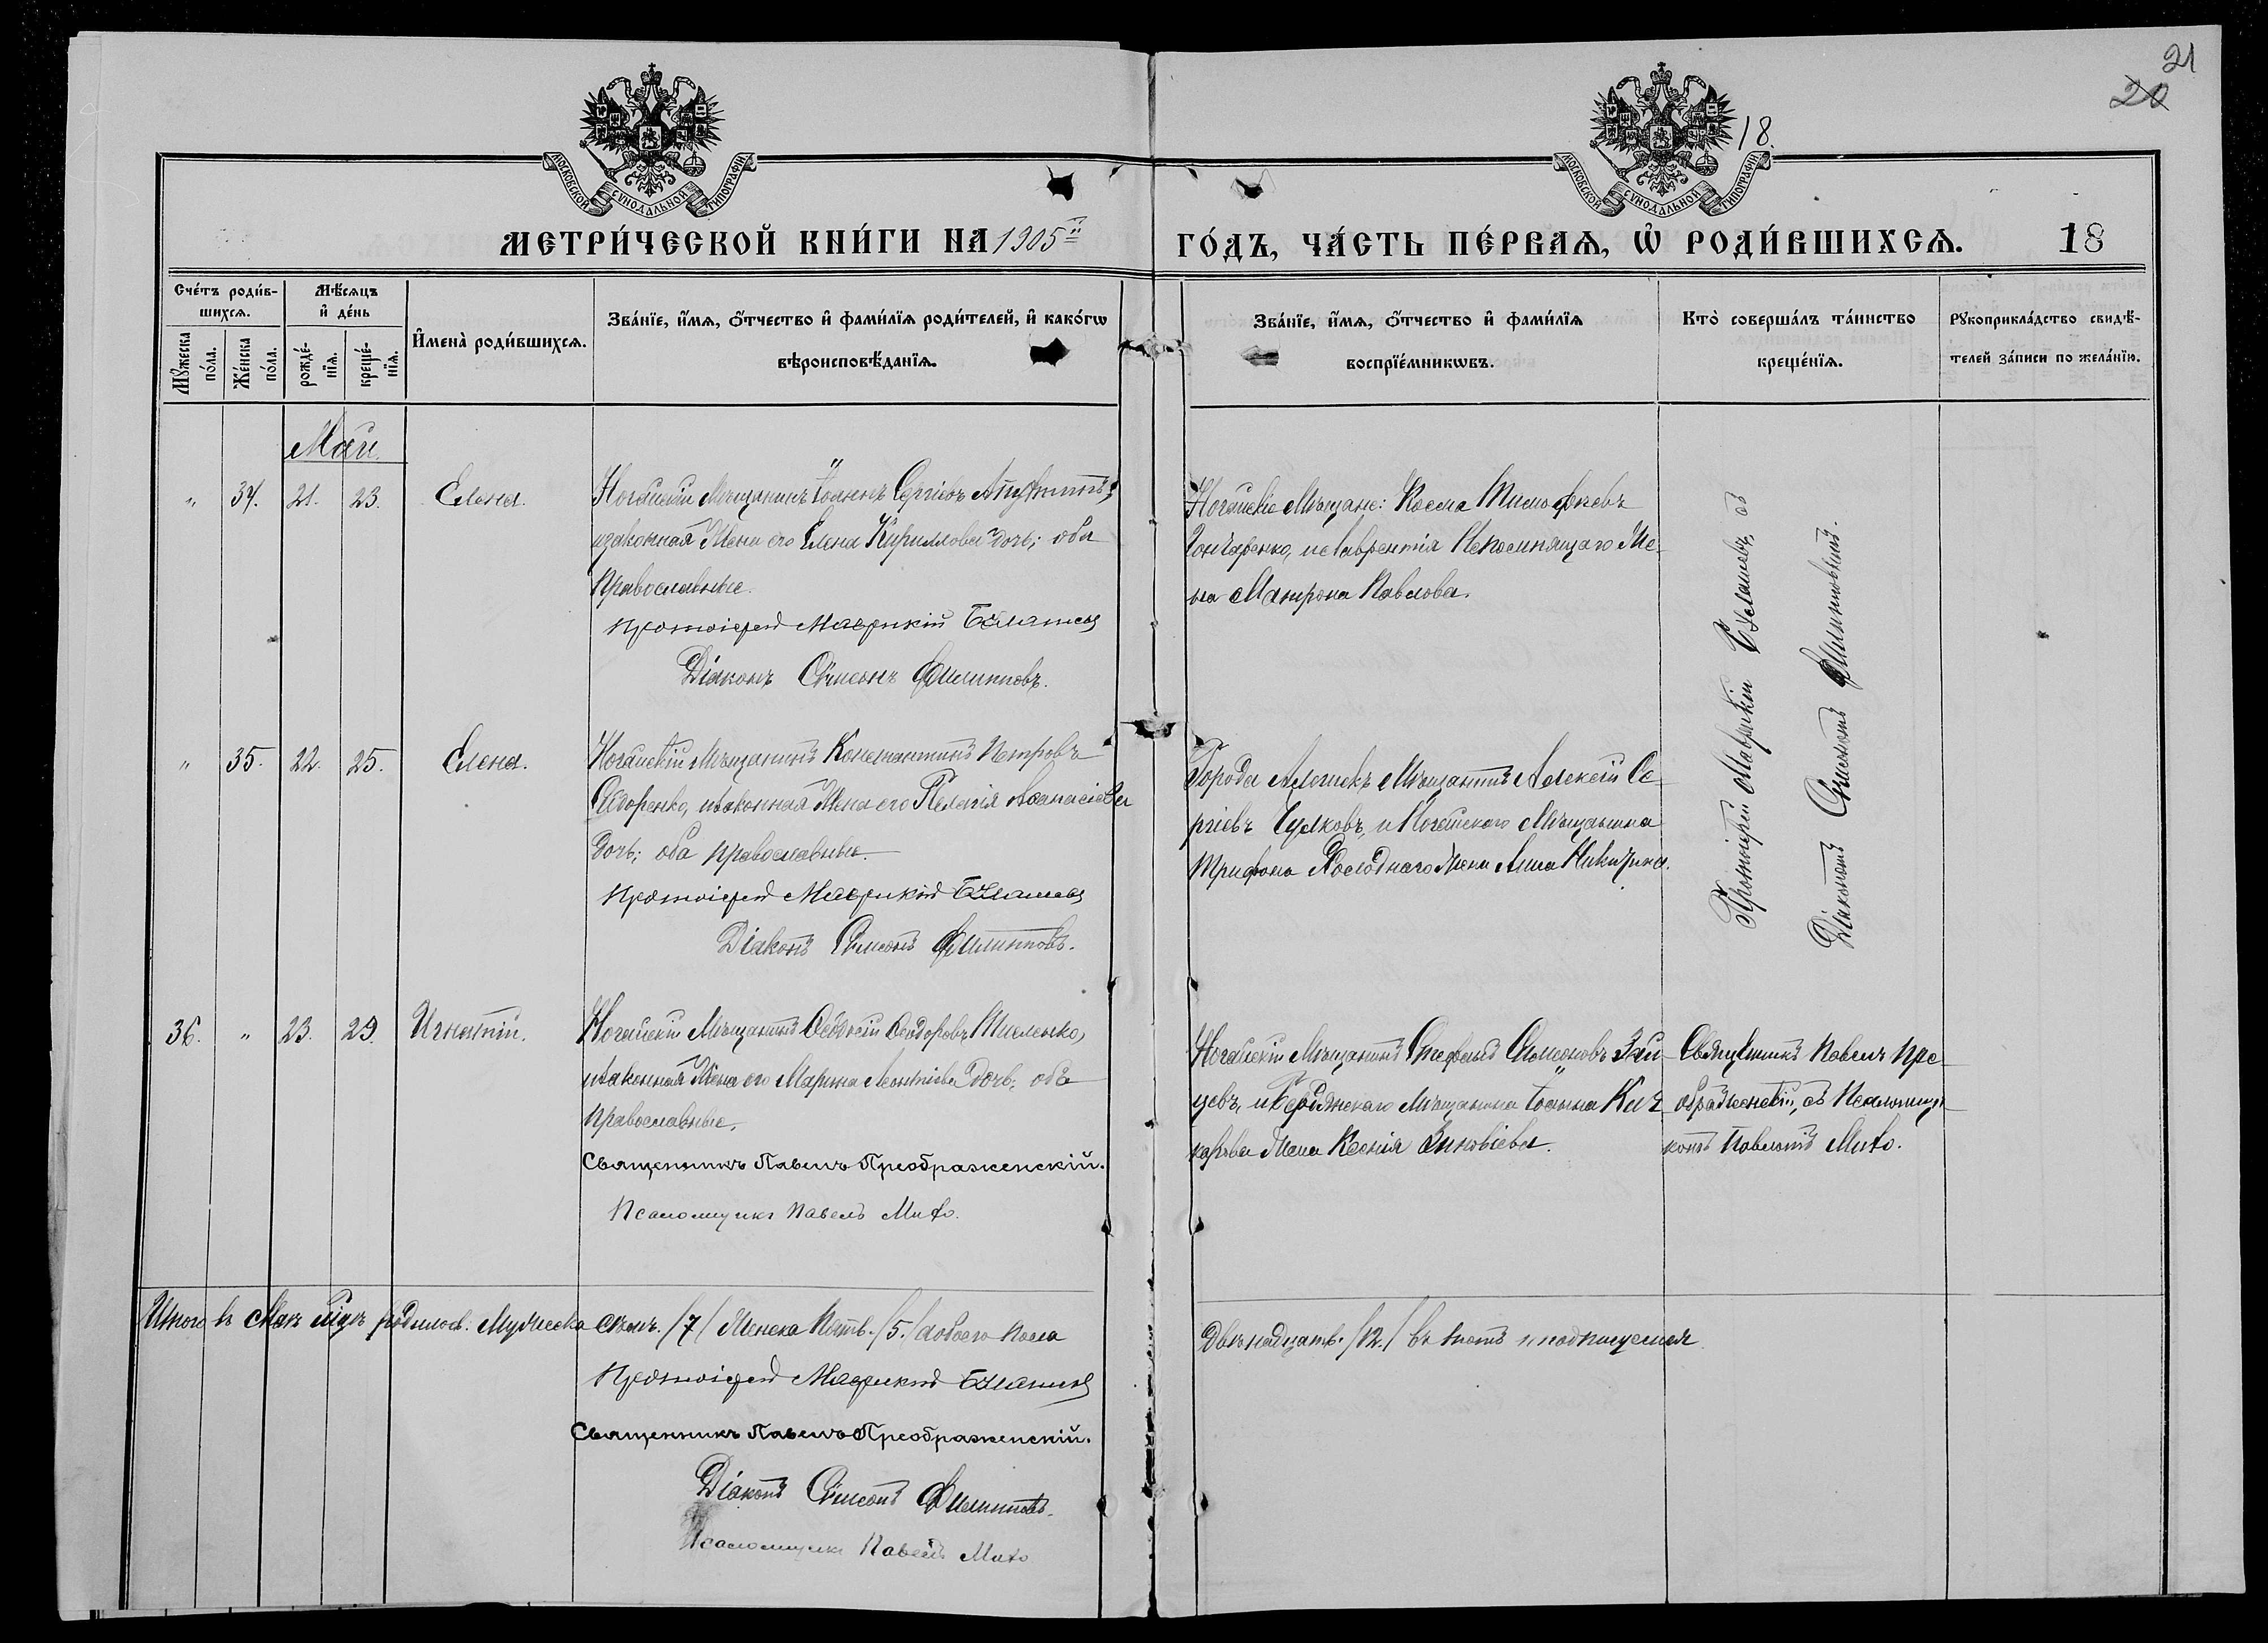 21
20
18.
МОСКОВСКОЙ СѴНОДАЛЬНОЙ ТИПОГРАФІИ
МОСКОВСКОЙ СѴНОДАЛЬНОЙ ТИПОГРАФІИ
МЕТРИ́ЧЕСКОЙ КНИ́ГИ НА 1905й
ГО́ДЪ, ЧА́СТЬ ПЕ́РВАѦ, Ѽ РОДИ́ВШИХСѦ.
18
Сче́тъ роди́в-
шихсѧ.
Мѣ́сѧцъ
и҆ де́нь
Мꙋ́жеска
по́ла.
Же́нска
по́ла.
рожде́-
нїѧ.
креще́-
нїѧ.
И҆мена̀ роди́вшихсѧ.
Зва́нїе, и҆́мѧ, ѻ҆́тчество и҆ фами́лїѧ роди́телей, и҆ како́гѡ
вѣроисповѣ́данїѧ.
Зва́нїе, и҆́мѧ, ѻ҆́тчество и҆ фами́лїѧ
воспрїе́мникѡвъ.
Кто̀ соверша́лъ та́инство
креще́нїѧ.
Рꙋкоприкла́дство свидѣ́-
телей за́писи по жела́нїю.
Май.
„ 34. 21. 23. Елена.
Ногайскій Мѣщанинъ Іоаннъ Сергіевъ
изаконная Жена его Елена Кириллова дочь; оба
Православные.
Протоіерей Маврикій
Діаконъ Сімеонъ Филипповъ.
Ногайскіе Мѣщане: Косма Тимофеевъ
Гончаренко, и Лаврентія Непомнящаго Же-
на Матрона Павлова.
Протоіерей Маврикій съ
Діакономъ Сімеономъ Филипповымъ.
„ 35. 22. 25. Елена.
Ногайскій Мѣщанинъ Константинъ Петровъ
Сидоренко, изаконная Жена его Пелагія Аѳанасіева
дочь; оба православные.
Протоіерей Маврикій
Діаконъ Сімеонъ Филипповъ.
Города Алешекъ Мѣщанинъ Алексій Се-
ргіевъ Чулковъ, и Ногайскаго Мѣщанина
Трифона Холоднаго Жена Анна Никитина.
36. „ 23. 29. Игнатій.
Ногайскій Мѣщанинъ Ѳеодосій Ѳеодоровъ
изаконная Жена его Марина Леонтіева дочь; оба
Православные.
Священникъ Павелъ Преображенскій.
Псаломщикъ Павелъ Михо.
Ногайскій Мѣщанинъ Стефанъ Симеоновъ Зай-
цевъ, и Бердянскаго Мѣщанина Іоанна
Жена Ксенія Зиновіева.
Священникъ Павелъ Пре-
ображенскій, съ Псаломщи-
комъ Павломъ Михо.
Итого въ Маѣ родилось. Мужеска семь. /7/ Женска Пять. /5./ обоего пола
Двѣнадцать. /12./ въ чемъ и подписуемся.
Протоіерей Маврикій
Священникъ Павелъ Преображенскій.
Діаконъ Сімеонъ Филипповъ.
Псаломщикъ Павелъ Михо